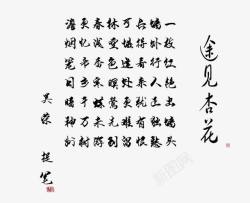 途见杏花
一枝红艳出墙头
墙外行人正独愁
长得看来犹有恨
可堪逢处更难留
林空色暝莺先到
春浅香寒蝶未游
更忆帝乡千万树
澹烟笼日暗神州
吴荣 提笔